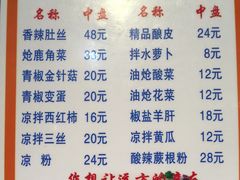 名称 中盘 名称 中盘
香辣肚丝 48元 精品酿皮 24元
炝鹿角菜 33元 拌水萝卜 8元
青椒金针菇 20元 油炝酸菜 12元
青椒变蛋 20元 油炝花菜 12元
凉拌西红柿 16元 椒盐羊肝 18元
凉拌三丝 20元 凉拌黄瓜 12元
凉粉 24元 酸辣蕨根粉 28元